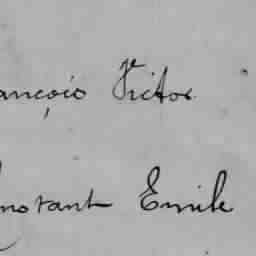 ançois Victor
nstant Emile